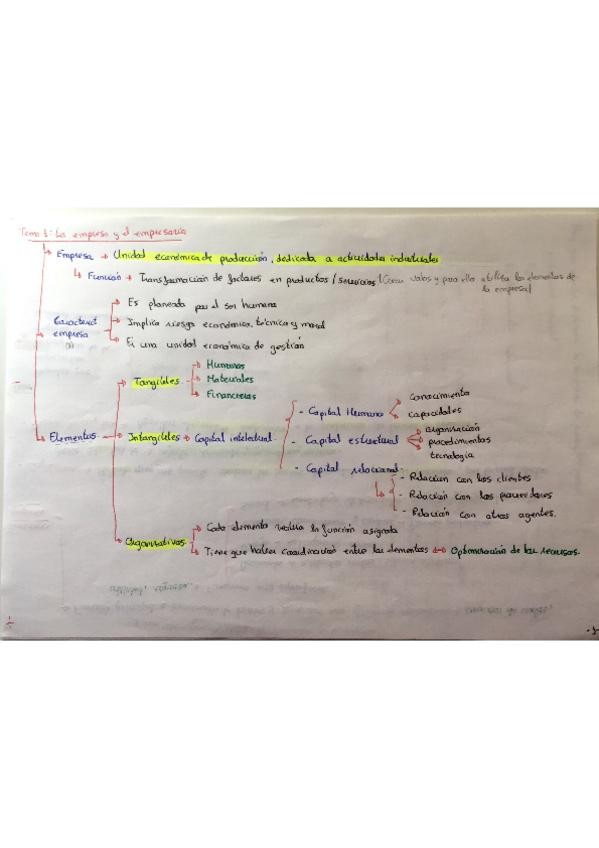 Tema 1: La empresa y el empresario
Empresa → Unidad económica de producción, dedicada a actividades industriales
Función → Transformación de factores en productos / servicios (Crear valor y para ello utiliza los elementos de
la empresa)
Caracterst
empresa
Es planeada por el ser humano
Implica riesgo económico, técnico y moral
Es una unidad económica de gestión
Elementos
Tangibles
Humanos
Materiales
Financieros
Intangibles → Capital intelectual
- Capital Humano
Conocimiento
Capacidades
- Capital estructural
organización
procedimientos
tecnología
- Capital relacional
- Relación con los clientes
- Relación con los proveedores
- Relación con otros agentes.
Organizativas
Cada elemento realiza la función asignada
Tiene que haber coordinación entre los elementos → Optimización de los recursos.